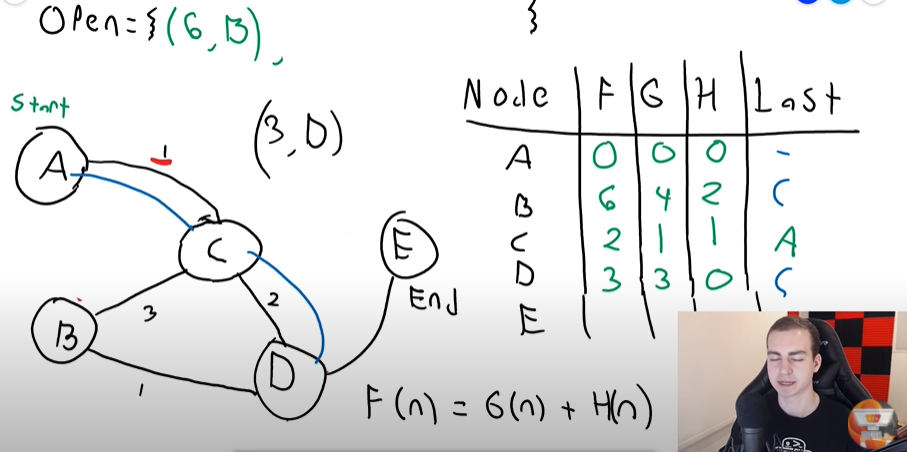 Open = { (6, B), }
Start
(3, D)
A
1
C
E
End
B
3
2
D
1
Node | F | G | H | Last
A | 0 | 0 | 0 | -
B | 6 | 4 | 2 | C
C | 2 | 1 | 1 | A
D | 3 | 3 | 0 | C
E
F(n) = G(n) + H(n)